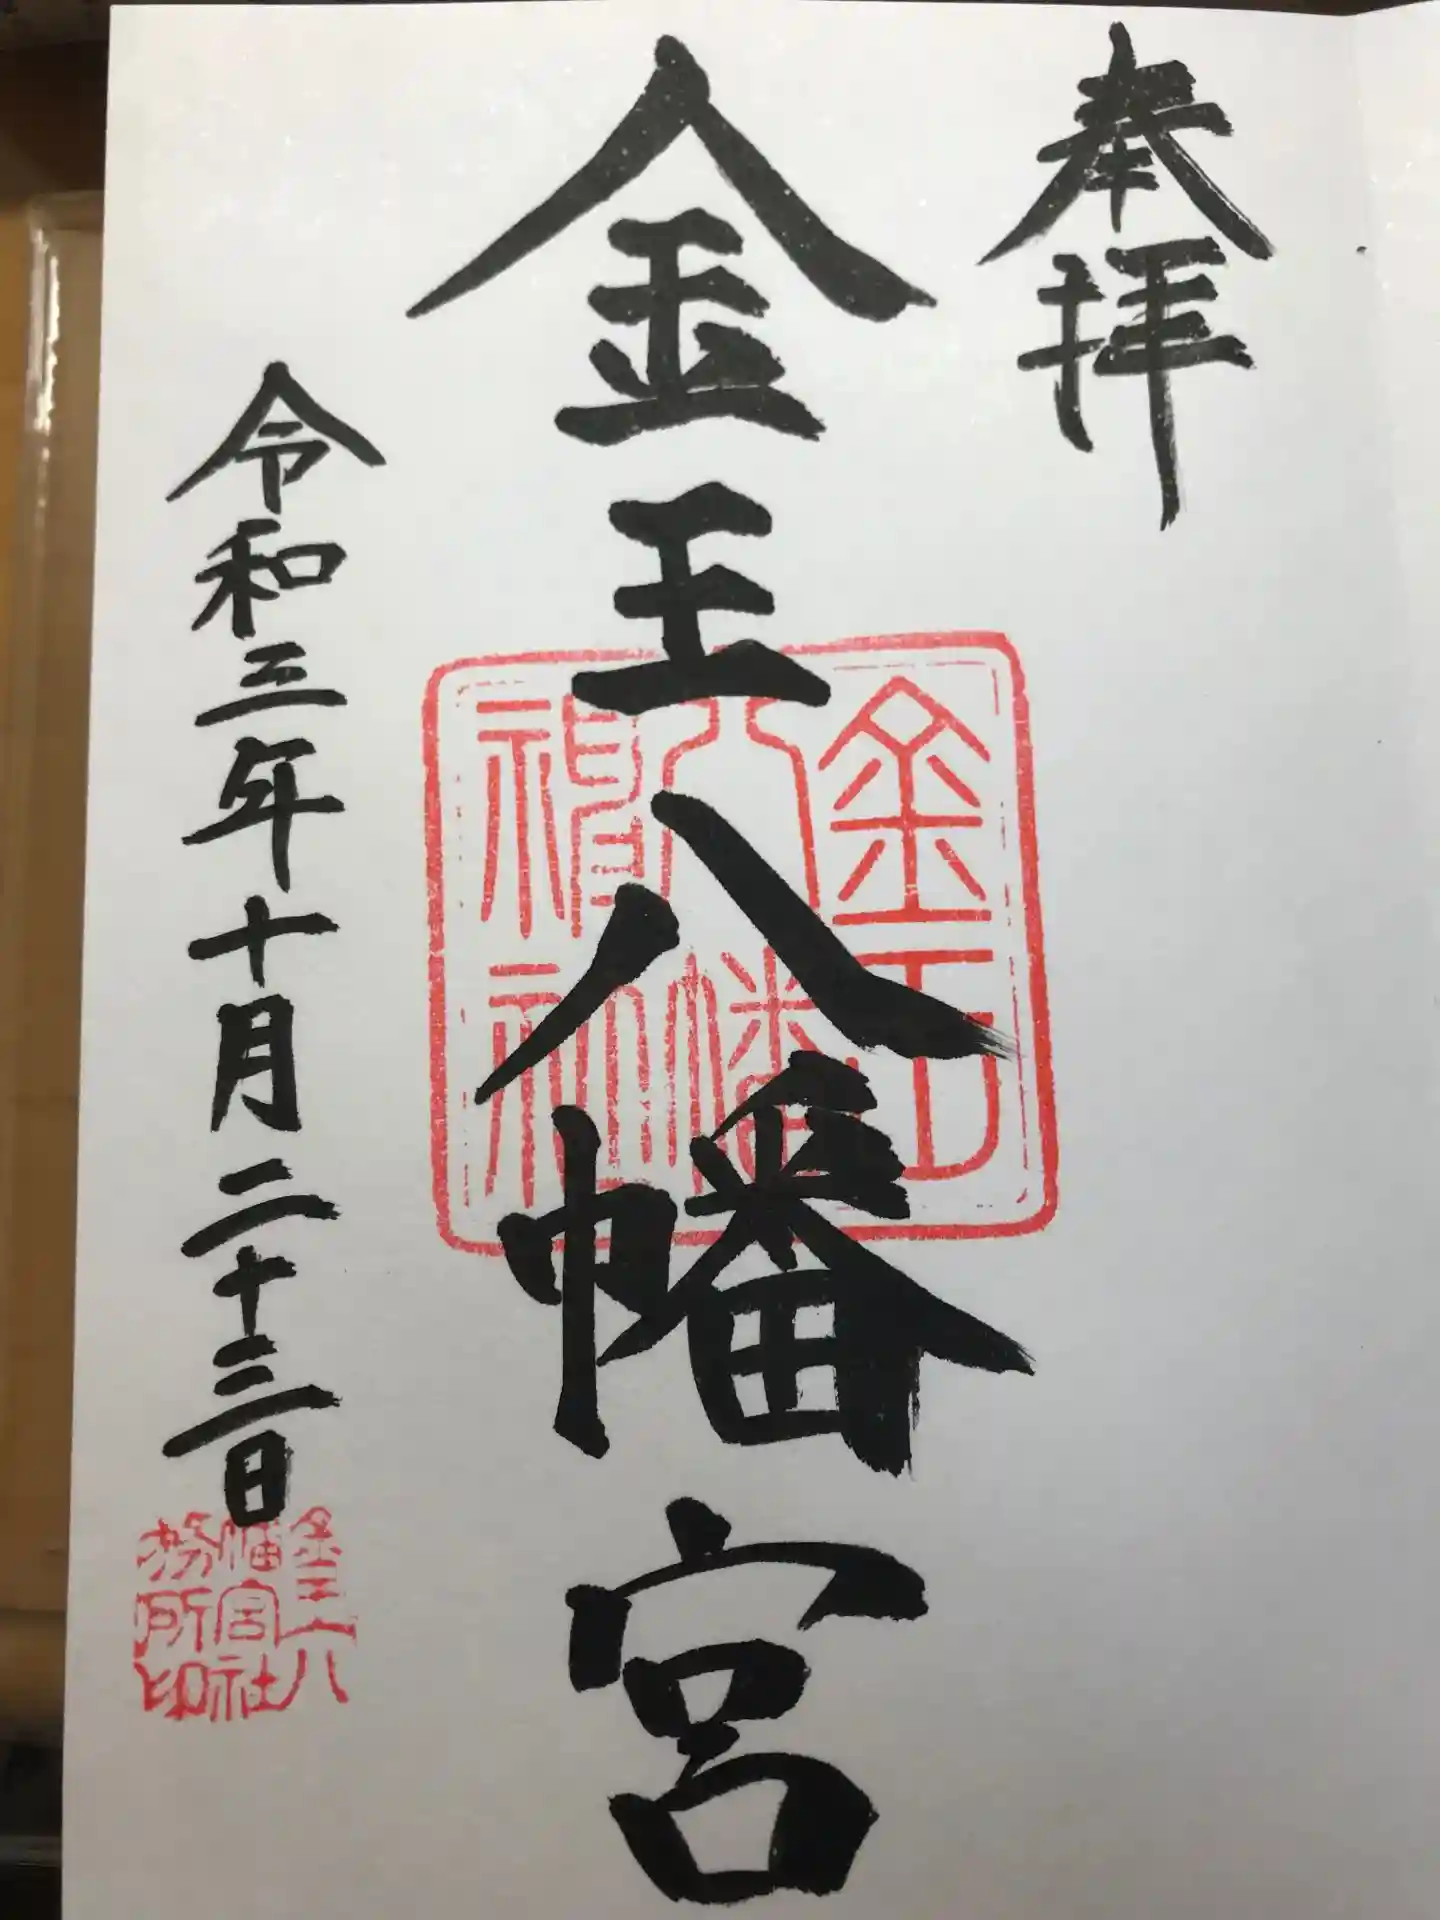 奉拝
金王八幡宮
金王
八幡
神社
令和三年十月二十三日
金王八
幡宮社
務所印